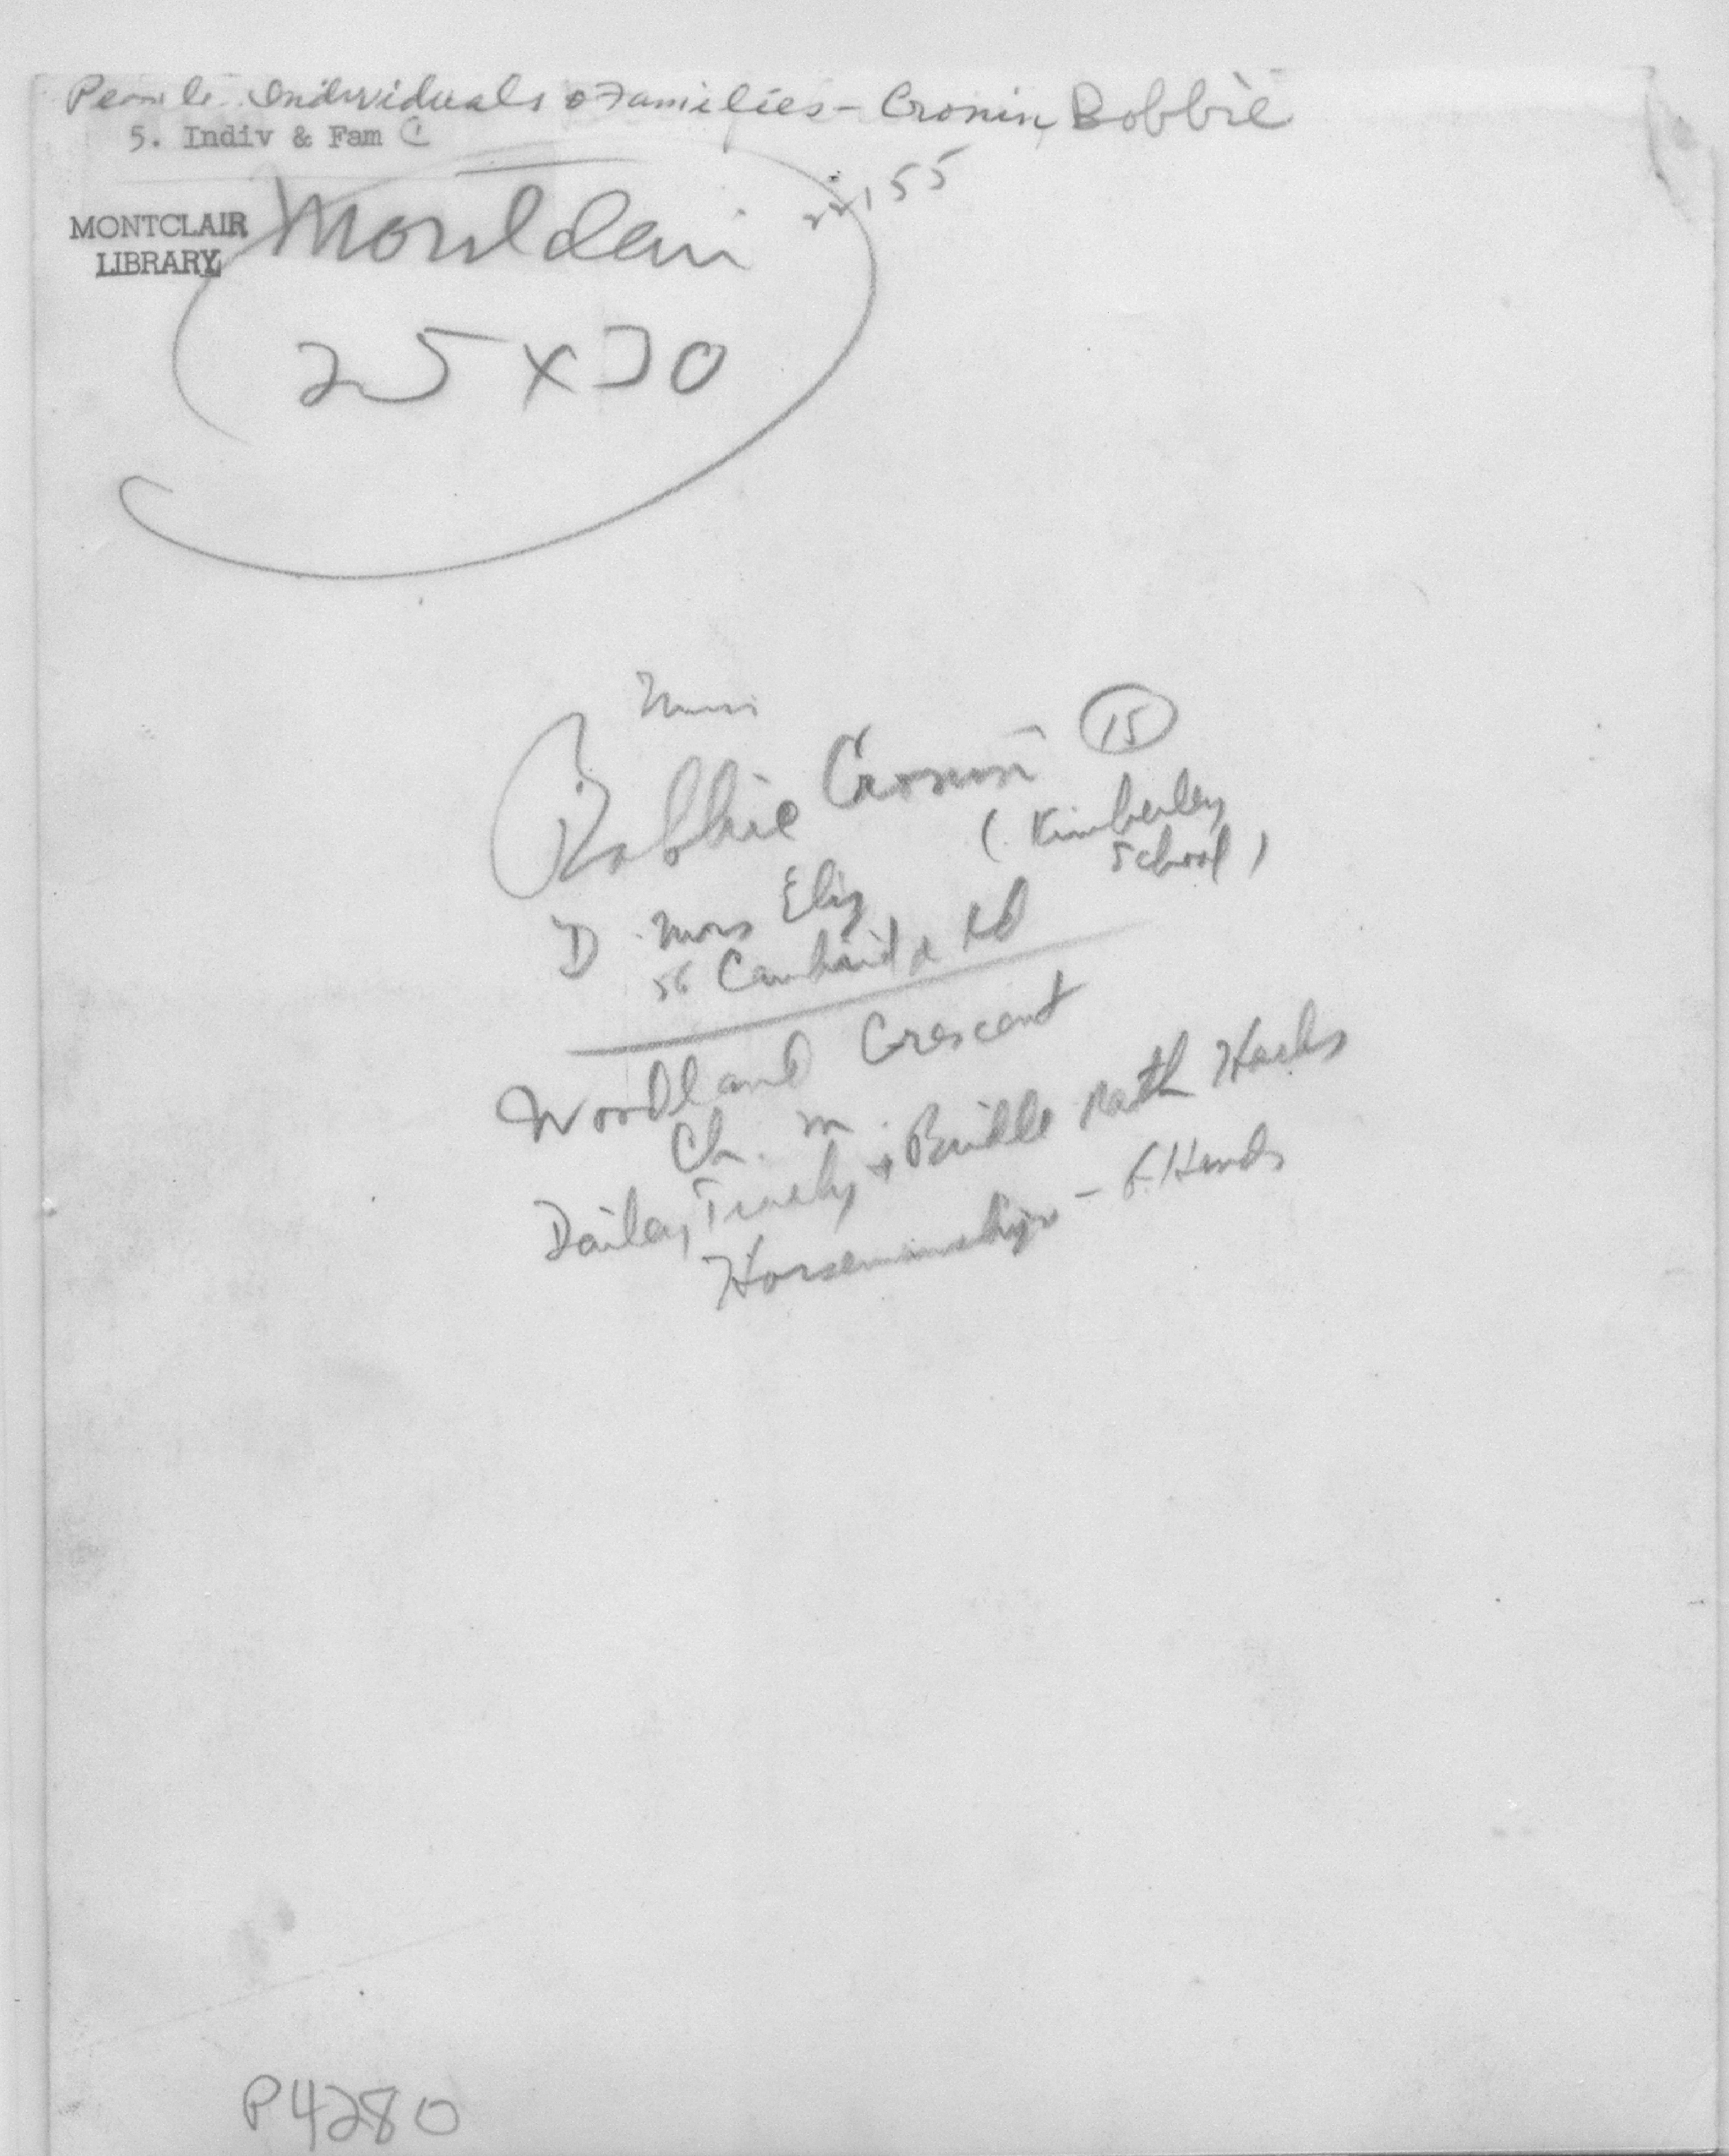 People Individuals & Families - Cronin Bobbie
5. Indiv & Fam C
MONTCLAIR
LIBRARY
Montclair
55
25 x 30
Miss
Bobbie Cronin 15
(Kimberley
School)
D Mrs Eliz
56 Rd
Woodland Crescent
Ch. M.
Dailey, + Bridle Path Hacks
Horsemanship -
P4280